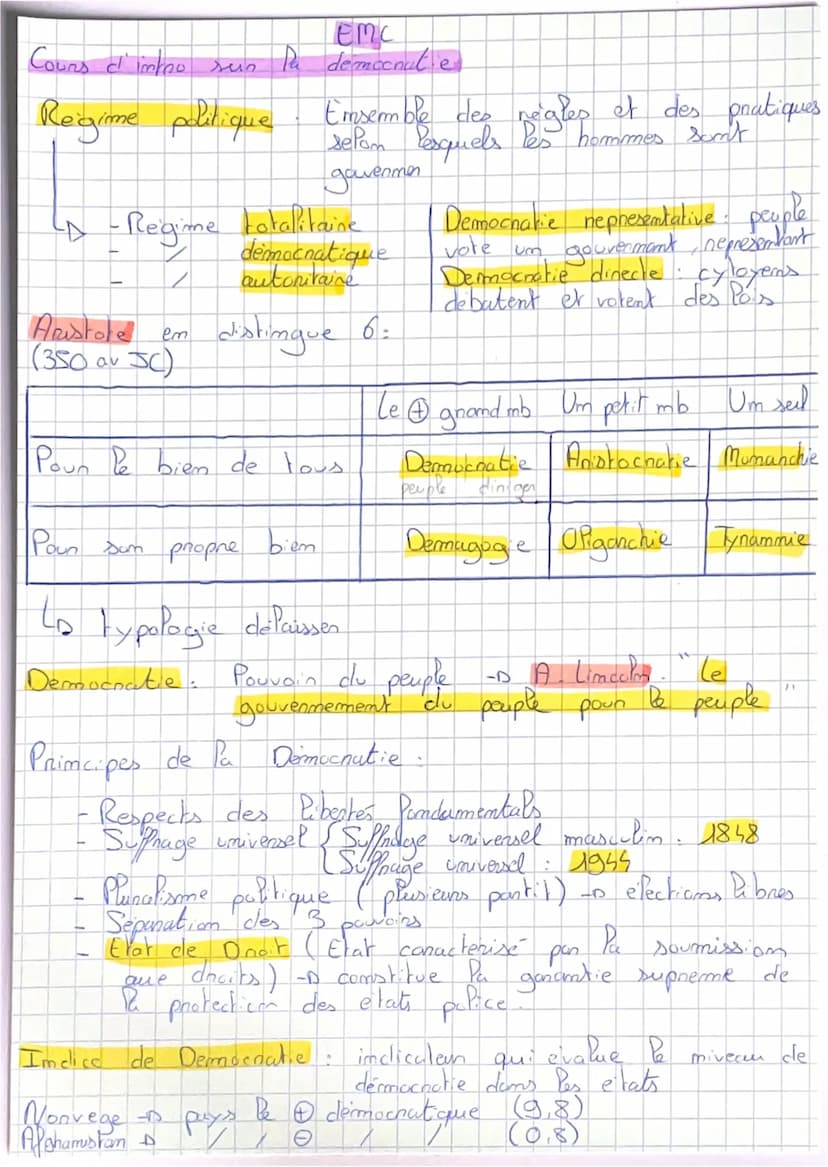 EMC
Cours d'intro sur la démocratie
Régime politique : Ensemble des règles et des pratiques
selon lesquels les hommes sont
gouverner
↳ - Régime totalitaire
- / démocratique
- / autoritaire
Democratie representative : peuple
vote un gouvermant, representant
Democratie directe : cytoyens
débatent et votent des lois
Aristote en distingue 6 :
(350 av JC)
Le ⊕ grand nb Un petit nb Un seul
Pour le bien de tous Democratie Aristocratie Monarchie
peuple diriger
Pour son propre bien Demagogie Oligarchie Tyrannie
↳ typologie délaisser
Democratie : Pouvoir du peuple → A. Lincoln : "le
gouvernement du peuple pour le peuple"
Principes de la Démocratie :
- Respects des libertés fondamentals
- Suffrage universel { Suffrage universel masculin : 1848
Suffrage universel : 1944
- Pluralisme politique (plusieurs partit) → élections libres
- Séparation des 3 pouvoirs
- Etat de Droit (Etat caractérisé par la soumission
que droits) → constitue la garantie supreme de
la protection des états police.
Indice de Democratie : indicateur qui évalue le niveau de
démocratie dans les états
Norvege → pays le ⊕ démocratique (9,8)
Afghanistan → / / ⊖ / / (0,8)